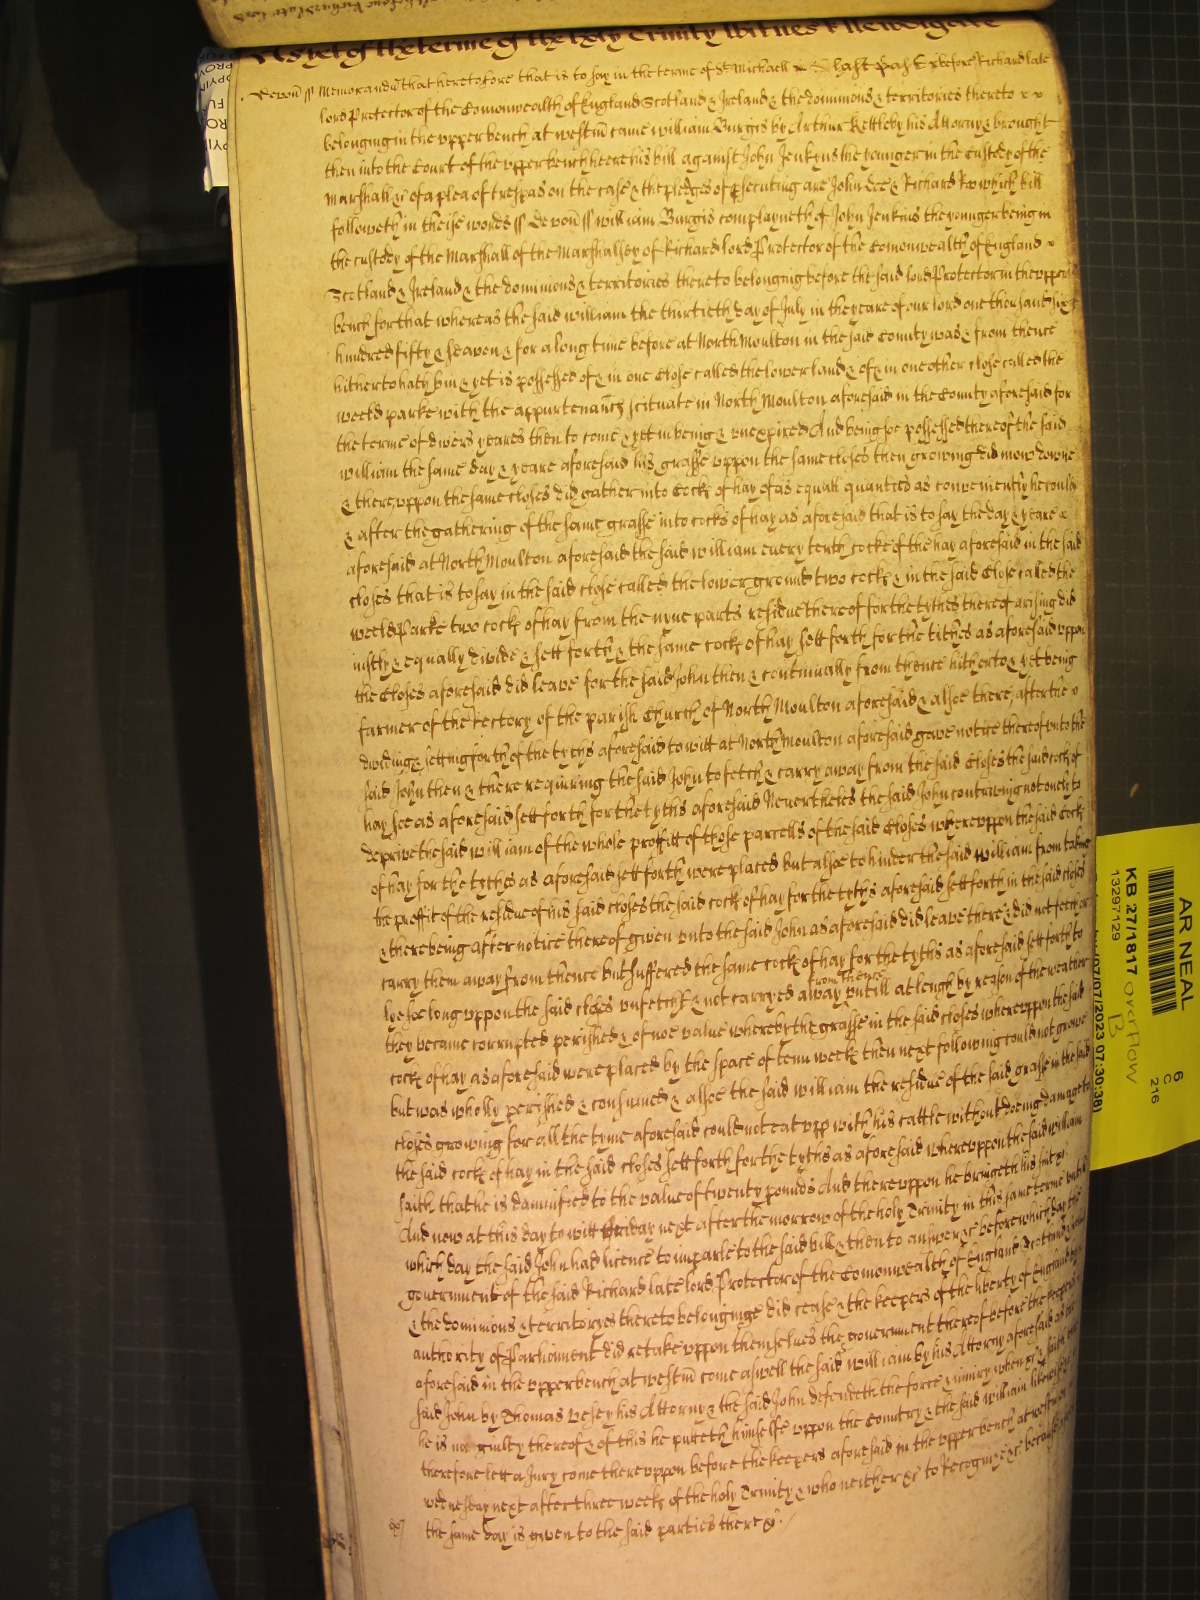 As yet of the terme of the holy Trinity Witnes R Newdigate
Devon ss Memorand that heretofore that is to say in the terme of St Michaell x x last past before Richard late
lord Protector of the Comonwealth of England Scotland & Ireland & the dominions & territories thereto x x
belonging in the vpper bench at westm came william Burgis by Arthur Kettleby his Attorny & brought
then into the Court of the vpper bench heere his bill against John Jenkyns the younger in the custody of the
Marshall &c of a plea of trespas on the case & the pledges of psecuting are John Dee & Richard Roo which bill
followeth in theise wordes ss devon ss william Burgis complayneth of John Jenkins the younger being in
the custody of the Marshall of the Marshalsey of Richard lord Protector of the Comonwealth of England x
Scotland & Ireland & the dominions & territories thereto belonging before the said lord Protector in the vpper
bench for that whereas the said william the thirtieth day of July in the yeare of our lord one thousand six
hundred fifty & seaven & for a long time before at North Moulton in the said County was & from thence
hitherto hath bin & yet is possessed of & in one Close called the lower land & of & in one other close called the
weeks parke with the appurtenancs scituate in North Moulton aforesaid in the County aforesaid for
the terme of divers yeares then to come & yet in being & vnexpired And being soe possessed thereof the said
william the same day & yeare aforesaid his grasse vppon the same closes then growing did mow downe
& there vppon the same closes did gather into Cocks of hay of as equall quantities as conveniently he could
& after the gathering of the same grasse into cocks of hay as aforesaid that is to say the day & yeare x
aforesaid at North Moulton aforesaid the said william every tenth cocke of the hay aforesaid in the said
closes that is to say in the said close called the lower ground two cocks & in the said Close called the
weeks Parke two cocks of hay from the nyne parts residue thereof for the tythes thereof arising did
iustly & equally divide & sett forth & the same cocks of hay sett forth for the tithes as aforesaid vppon
the Closes aforesaid did leave for the said John then & continually from thence hitherto & yet being
farmer of the Rectory of the parish Church of North Moulton aforesaid & alsoe there after the x
dividing & setting forth of the tyths aforesaid to witt at North Moulton aforesaid gave notice thereof vnto the
said John then & there requiring the said John to fetch & carry away from the said Closes the said cocks of
hay soe as aforesaid sett forth for the tyths aforesaid Neverthelес the said John contriving not onely to
deprive the said william of the whole proffitt of those parcells of the said Closes wherevppon the said Cocks
of hay for the tythes as aforesaid sett forth were placed but alsoe to hinder the said william from taking
the proffit of the residue of his said closes the said cocks of hay for the tyths aforesaid sett forth in the said closes
& there being after notice thereof given vnto the said John as aforesaid did leave there & did not fetch or
carry them away from thence but suffered the same cocks of hay for the tyths as aforesaid sett forth to
lye soe long vppon the said closes vnfetcht & not carryed away from thence vntill at lengh by reason of the weather
they became corrupted perished & of noe value whereby the grasse in the said closes wherevppon the said
cocks of hay as aforesaid were placed by the space of tenn weeks then next following could not growe
but was wholly perished & consumed & alsoe the said william the residue of the said grasse in the said
closes growing for all the tyme aforesaid could not eat vpp with his cattle without doeing damage to
the said cocks of hay in the said closes sett forth for the tyths as aforesaid wherevppon the said william
saith that he is damnified to the value of twenty pounds And therevppon he bringeth his suit &c
And now at this day to witt friday next after the morrow of the holy Trinity in this same terme vntill
which day the said John had licence to imparle to the said bill & then to answer &c before which day the
government of the said Richard late lord Protector of the Comonwealth of England Scotland & Ireland
& the dominions & territoryes thereto belonginge did cease & the keepers of the liberty of England by
authority of Parliament did retake vppon themselves the government thereof before the keepers
aforesaid in the vpper bench at westm come aswell the said william by his Attorny aforesaid as the
said John by Thomas Vesey his Attorny & the said John defendeth the force & iniury when &c & saith that
he is not guilty thereof & of this he putteth himselfe vppon the Country & the said william likewise &c
therefore lett a Jury come therevppon before the keepers aforesaid in the vpper bench at westm on
wednesday next after three weeks of the holy Trinity & who neither &c to Recognize &c because
the same day is given to the said parties there &c
AR NEAL
KB 27/1817 overflow
13297129
B
6
C
216
07/07/2023 07:30:38)